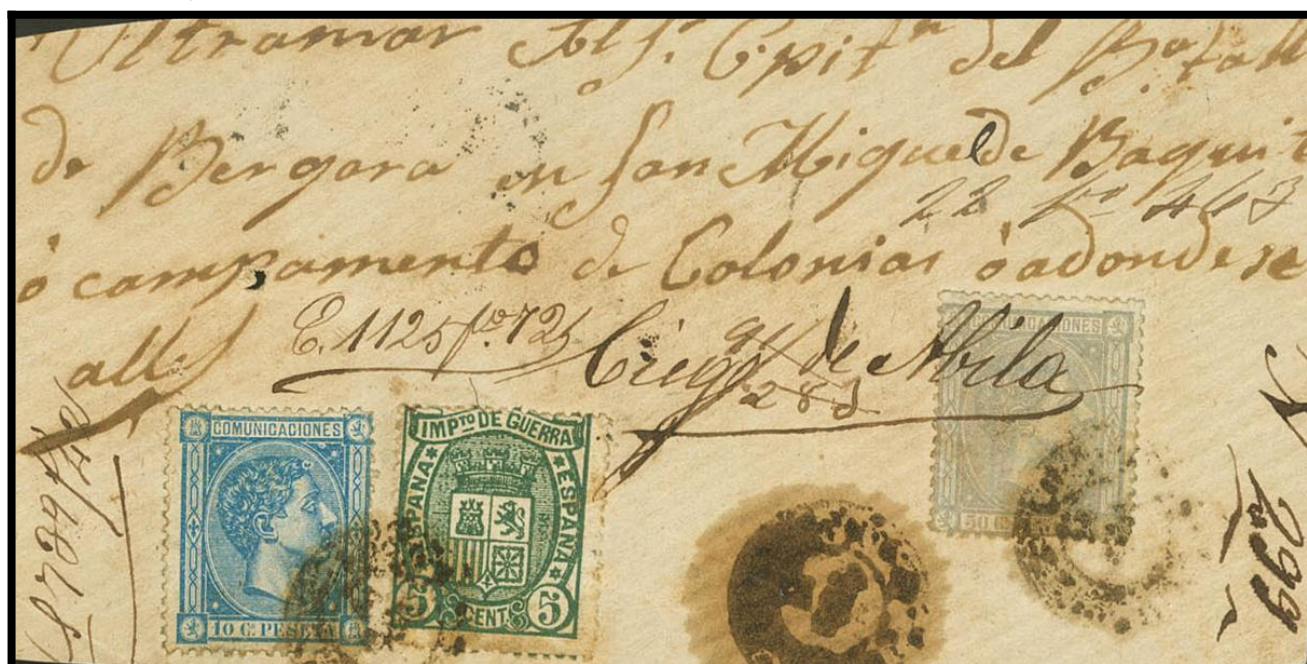 Ultramar Al Sr. Cpitn del Batall
de Bergara en San Miguel de Baquit
22 fo 463
ó campamento de Colonias ó adonde se
alle
E. 1125 fo. 725
Ciego de Abila
283
COMUNICACIONES
10 C. PESETA
IMPTO DE GUERRA
ESPAÑA
ESPAÑA
5 CENT. 5
COMUNICACIONES
50 C.
299